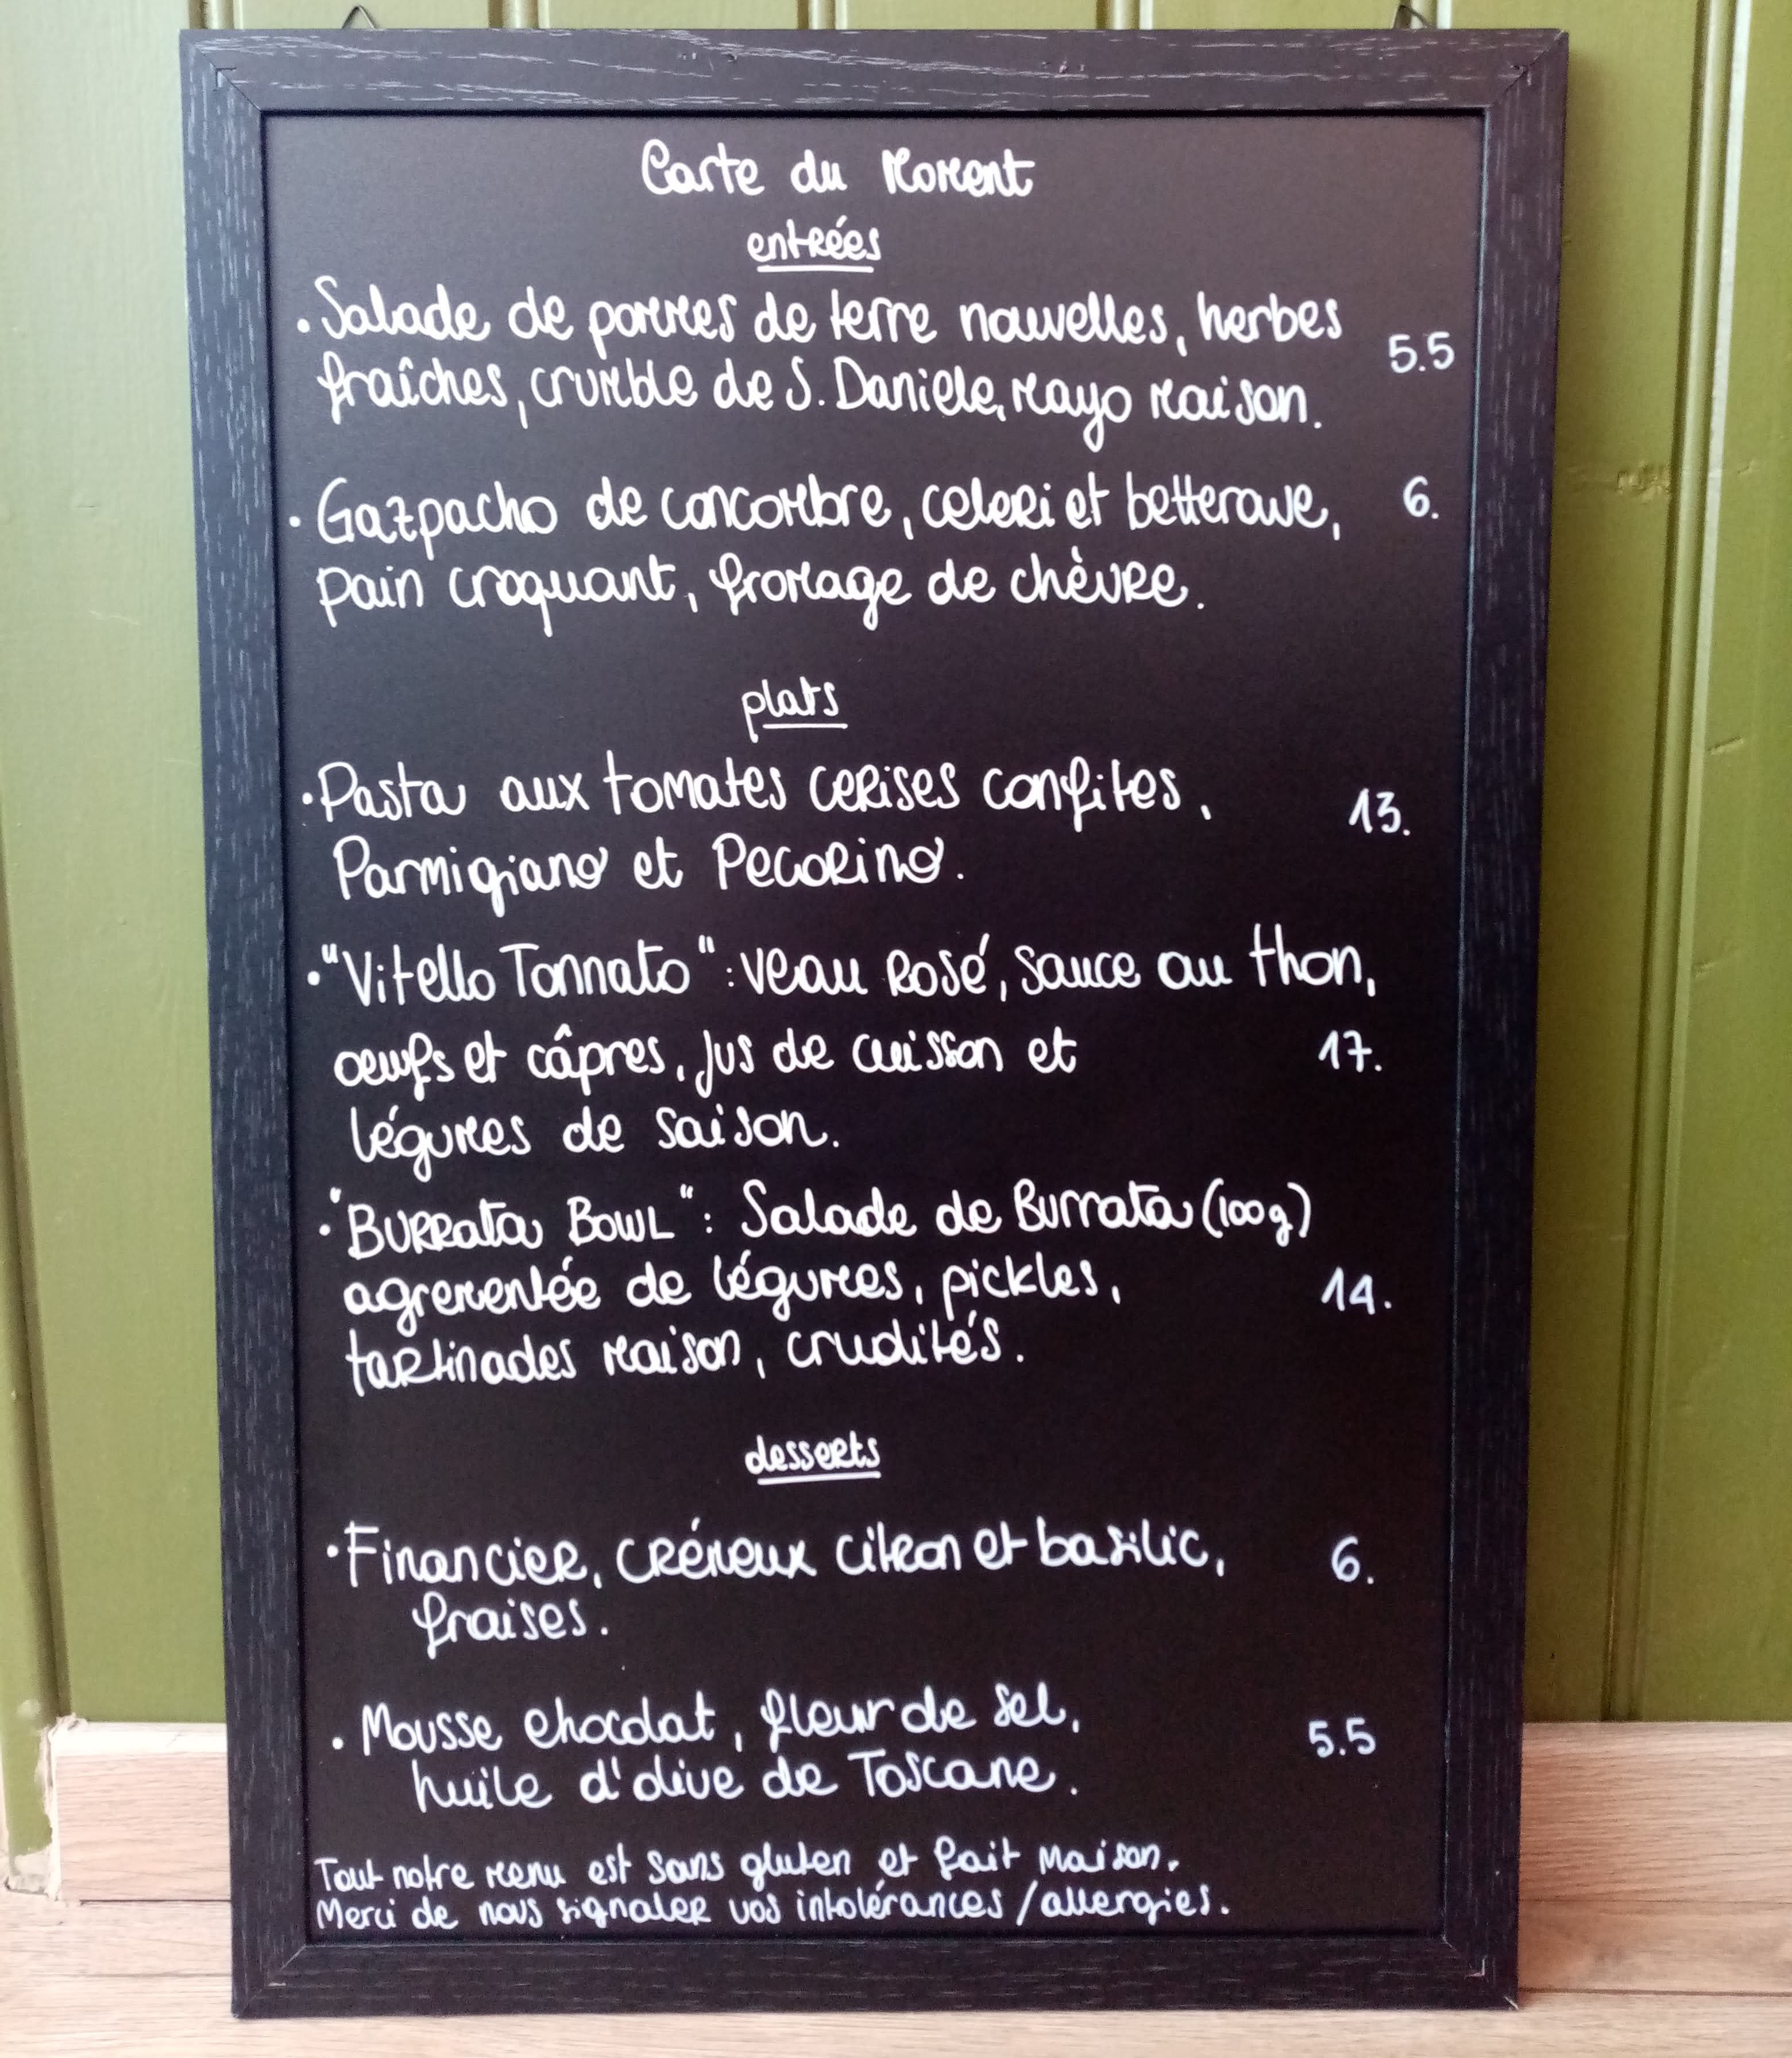 Carte du Moment
entrées
• Salade de pommes de terre nouvelles, herbes
fraîches, crumble de S. Daniele, mayo maison. 5.5
• Gazpacho de concombre, celeri et betterave, 6.
pain croquant, fromage de chèvre.
plats
• Pasta aux tomates cerises confites, 13.
Parmigiano et Pecorino.
• "Vitello Tonnato": veau rosé, sauce au thon,
oeufs et câpres, jus de cuisson et 17.
légumes de saison.
• "BURRata BOWL": Salade de Burrata (100g)
agrementée de légumes, pickles, 14.
tartinades maison, crudités.
desserts
• Financier, crémeux citron et basilic, 6.
fraises.
• Mousse chocolat, fleur de sel, 5.5
huile d'olive de Toscane.
Tout notre menu est sans gluten et fait maison.
Merci de nous signaler vos intolérances/allergies.